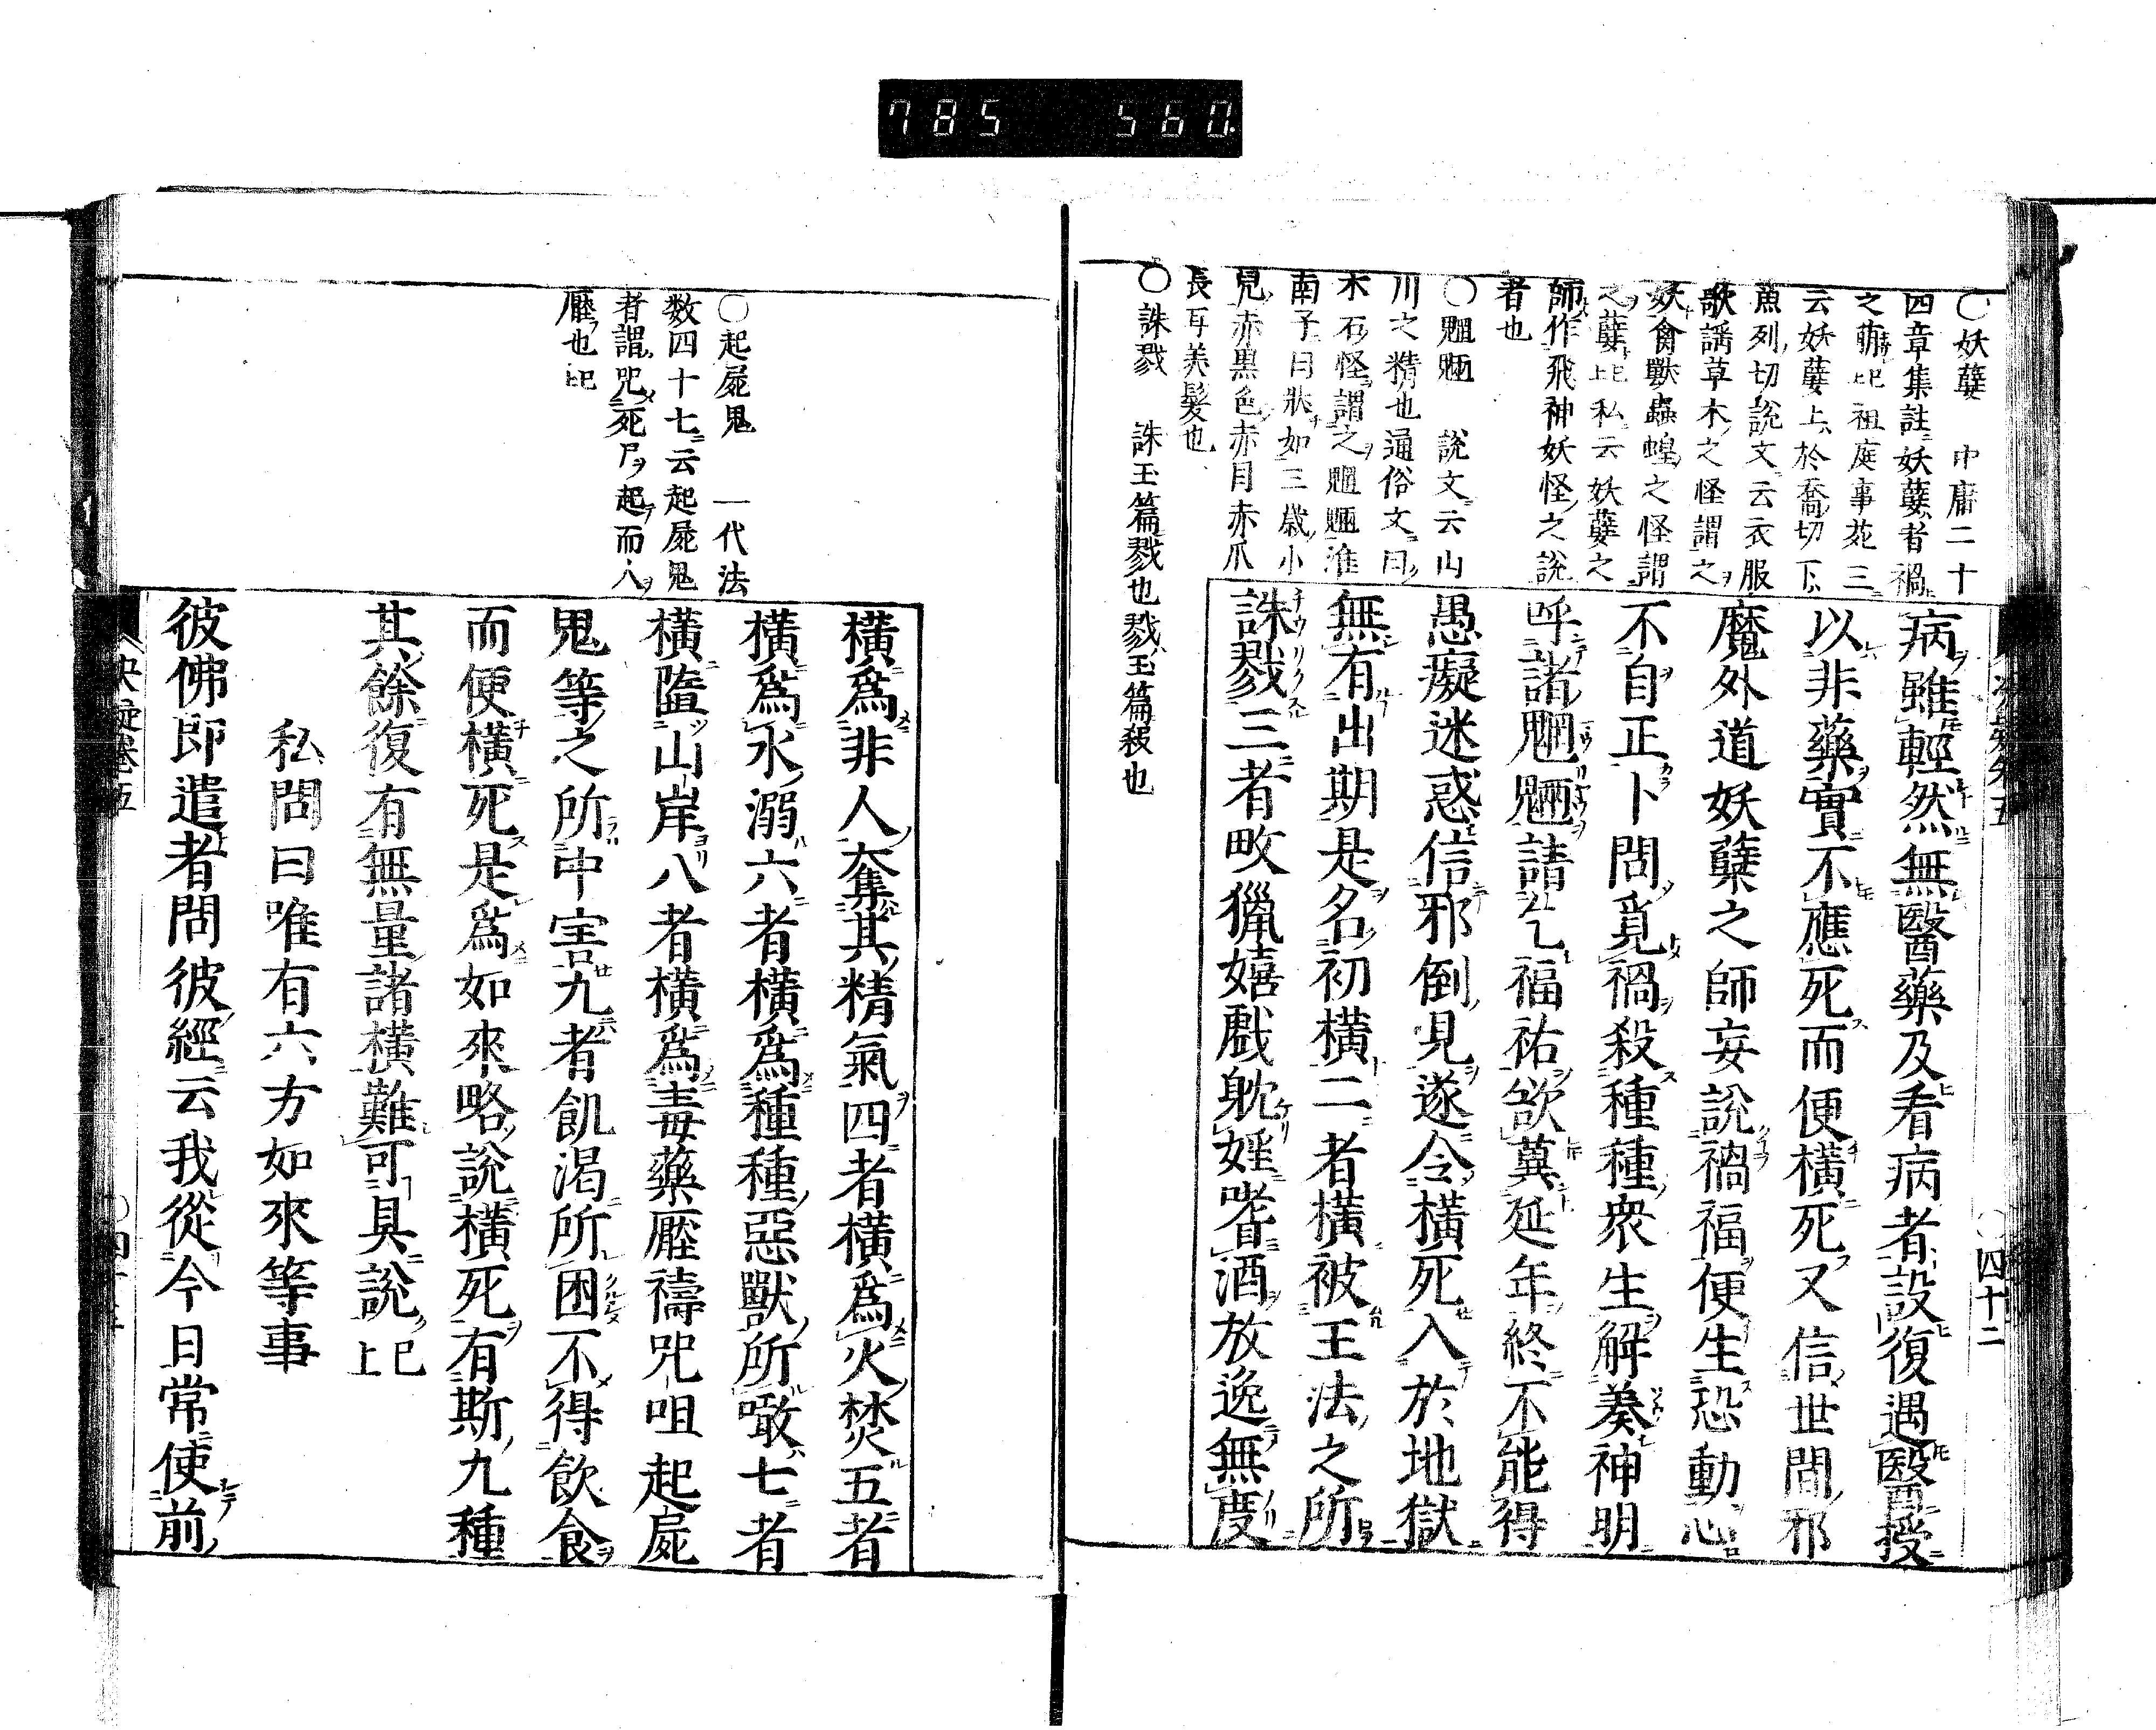 785 560
〇妖孽 中庸二十
四章集註妖孽者禍
之萠上已祖庭事苑三
云妖孽上於喬切下
魚列切說文云衣服
歌謠草木之怪謂之
妖禽獸蟲蝗之怪謂
之孽上已私云妖孽之
師作飛神妖怪之說
者也
〇魍魎 說文云山
川之精也通俗文曰
木石怪謂之魍魎淮
南子曰狀如三歲小
兒赤黒色赤目赤爪
長耳美髮也
〇誅戮 誅玉篇戮也戮玉篇殺也
四十二
病雖輕然無醫藥及看病者設復遇醫授
以非藥實不應死而便橫死又信世間邪
魔外道妖孽之師妄說禍福便生恐動心
不自正卜問覓禍殺種種衆生解奏神明
呼諸魍魎請乞福祐欲冀延年終不能得
愚癡迷惑信邪倒見遂令橫死入於地獄
無有出期是名初橫二者橫被王法之所
誅戮三者畋獵嬉戲耽婬嗜酒放逸無度
〇起屍鬼 一代法
数四十七云起屍鬼
者謂咒死尸ヲ起而人
厭也上已
橫爲非人奪其精氣四者橫爲火焚五者
橫爲水溺六者橫爲種種惡獸所噉七者
橫墮山岸八者橫爲毒藥厭禱咒咀起屍
鬼等之所中害九者飢渴所困不得飲食
而便橫死是爲如來略說橫死有斯九種
其餘復有無量諸橫難可具說已上
私問曰唯有六方如來等事
彼佛即遣者問彼經云我從今日常使前
決疑卷五